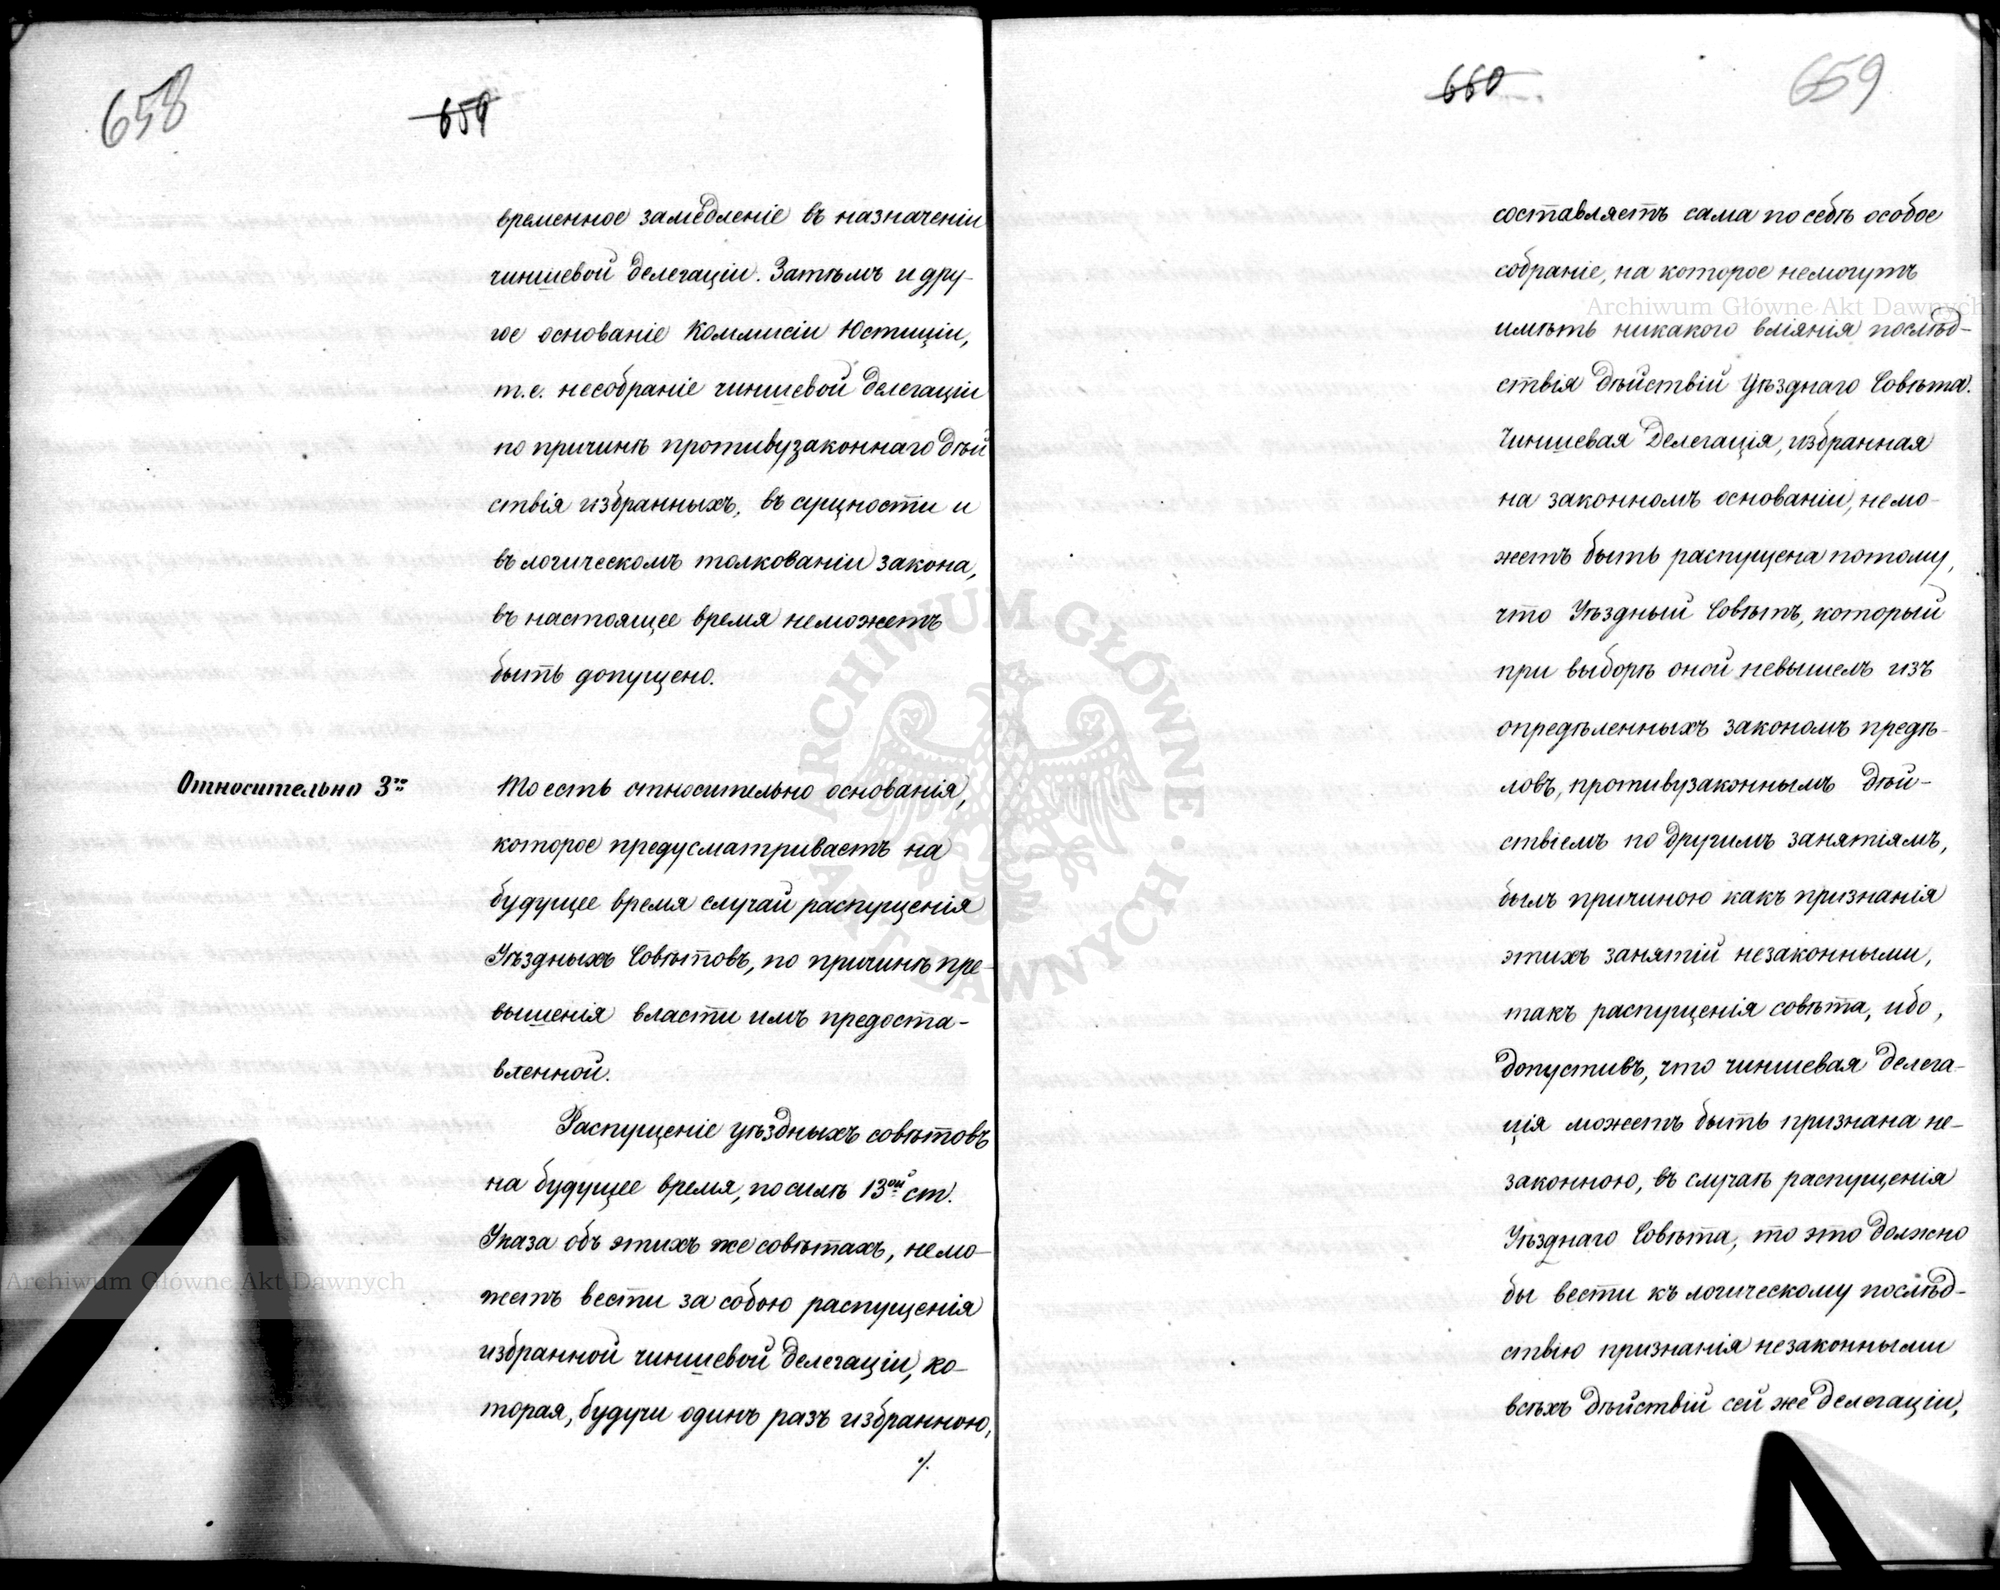 658
659
временное замедленіе въ назначеніи
чиншевой делегаціи. Затѣмъ и дру-
гое основаніе Коммисіи Юстиціи,
т.е. несобраніе чиншевой делегаціи
по причинѣ противузаконнаго дѣй
ствія избранныхъ, въ сущности и
въ логическомъ толкованіи закона,
въ настоящее время неможетъ
быть допущено.
Относительно 3го
То есть относительно основанія,
которое предусматриваетъ на
будущее время случай распущенія
Уѣздныхъ Совѣтовъ, по причинѣ пре-
вышенія власти имъ предоста-
вленной.
Распущеніе уѣздныхъ совѣтовъ
на будущее время, по силѣ 13ой ст.
Указа объ этихъ же совѣтахъ, немо-
жетъ вести за собою распущенія
избранной чиншевой делегаціи, ко-
торая, будучи одинъ разъ избранною,
./.
660
659
составляетъ сама по себѣ особое
собраніе, на которое немогутъ
имѣть никакого вліянія послѣд-
ствія дѣйствій Уѣзднаго Совѣта.
Чиншевая Делегація, избранная
на законномъ основаніи, немо-
жетъ быть распущена потому,
что Уѣздный Совѣтъ, который
при выборѣ оной невышелъ изъ
опредѣленныхъ закономъ предѣ-
ловъ, противузаконнымъ дѣй-
ствіемъ по другимъ занятіямъ,
былъ причиною какъ признанія
этихъ занятій незаконными,
такъ распущенія совѣта, ибо,
допустивъ, что чиншевая делега-
ція можетъ быть признана не-
законною, въ случаѣ распущенія
Уѣзднаго Совѣта, то это должно
бы вести къ логическому послѣд-
ствію признанія незаконными
всѣхъ дѣйствій сей же делегаціи,
Archiwum Główne Akt Dawnych
Archiwum Główne Akt Dawnych
ARCHIWUM GŁÓWNE · AKT DAWNYCH ·